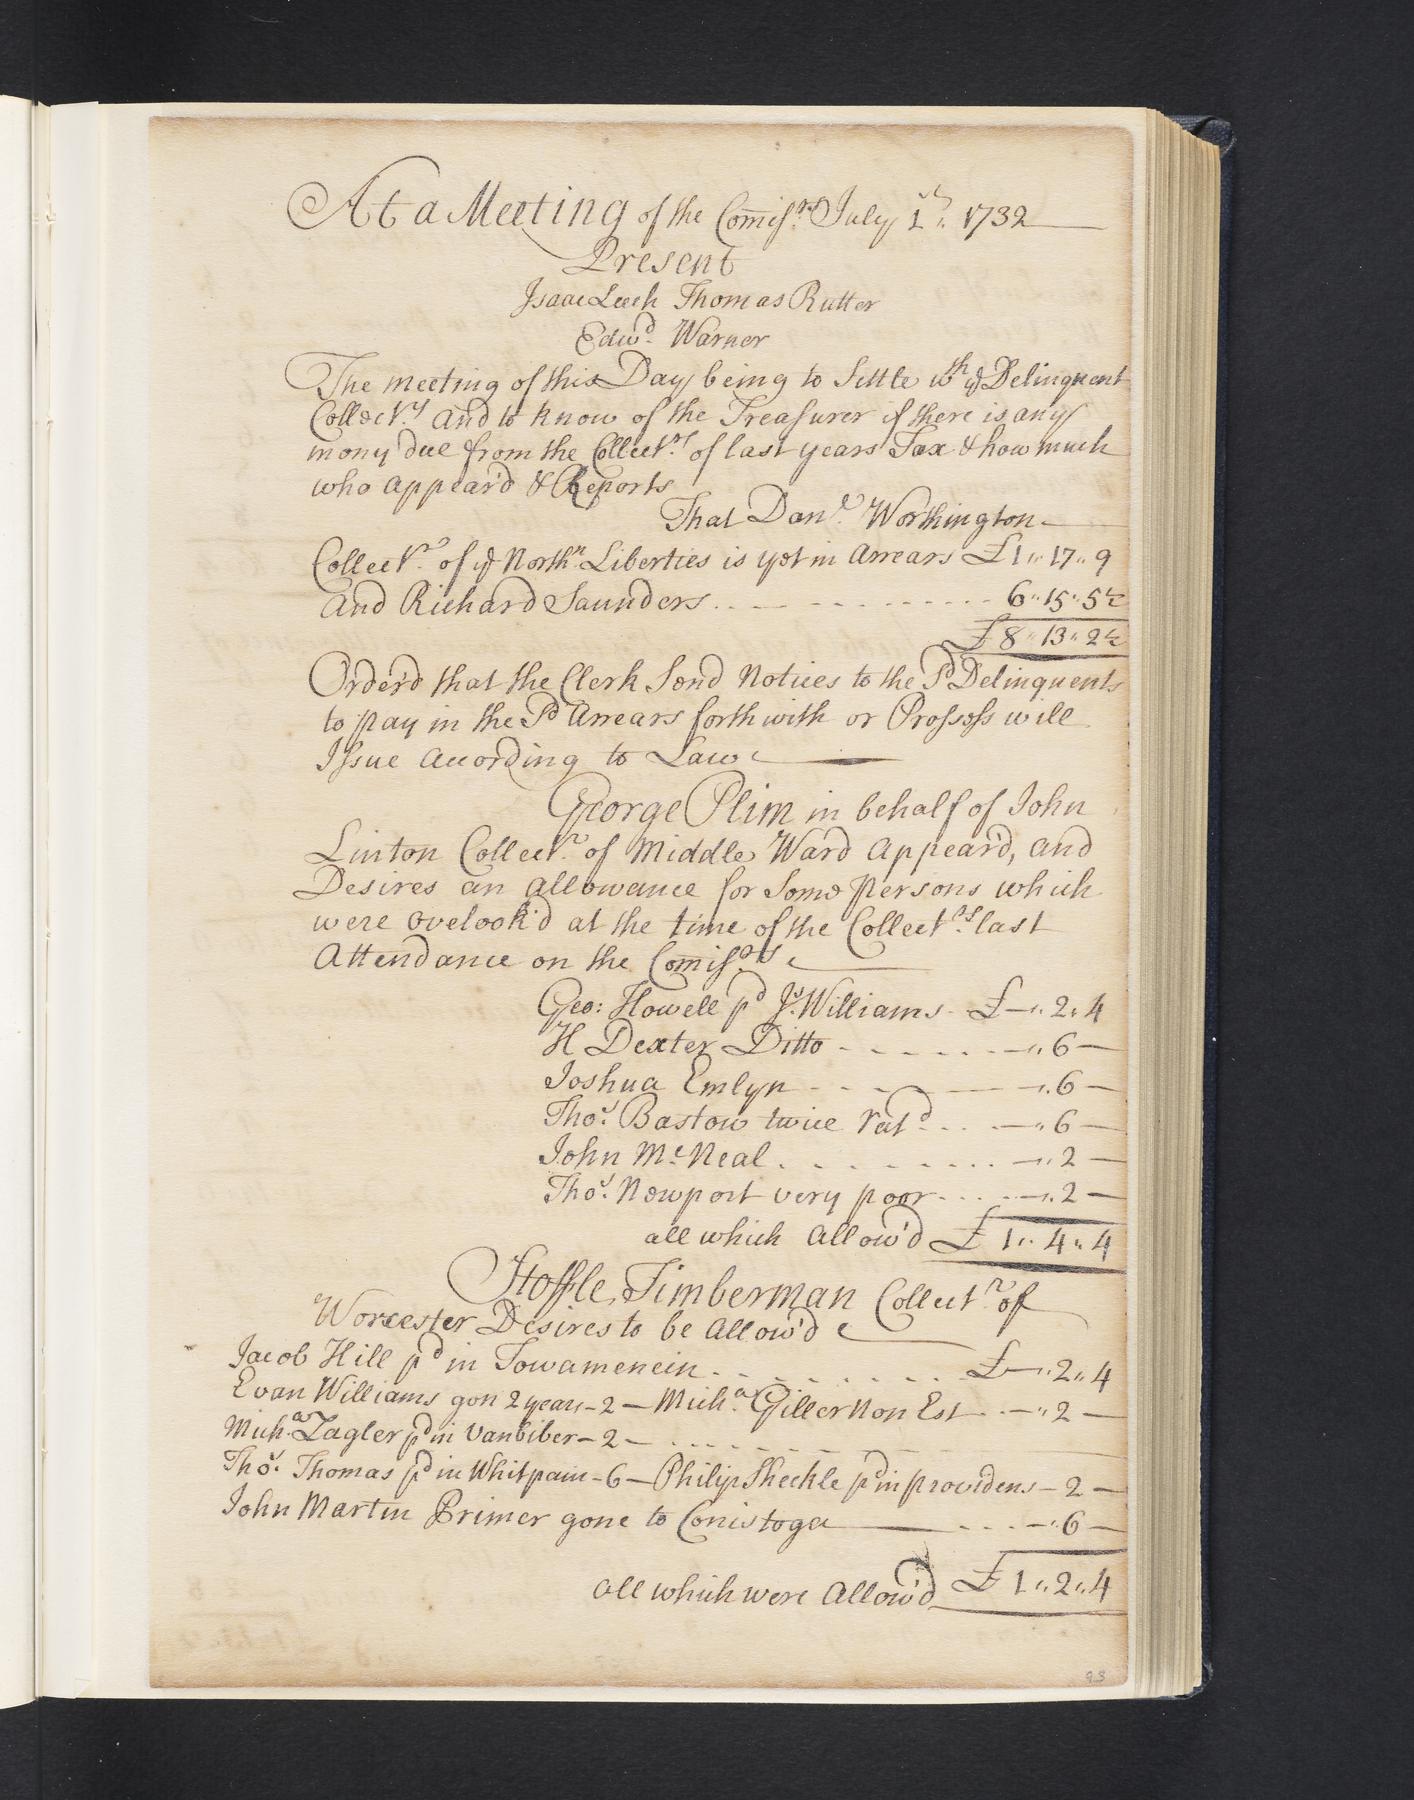 At a Meeting of the Comissrs July 1st 1732
Present
Isaac Leech Thomas Rutter
Edwd Warner
The meeting of this Day being to Settle wth ye Delinquent
Collectrs and to know of the Treasurer if there is any
mony due from the Collectrs of last years Tax & how much
who appear'd & Reports
That Danl. Worthington
Collectr of ye Northn Liberties is yet in Arrears £1,,17,,9
And Richard Saunders 6,,15,,5½
£8,,13,,2½
Order'd that the Clerk Send Notices to the sd Delinquents
to pay in the sd Arrears forthwith or Prossess will
Issue Acording to Law
George Plim in behalf of John
Linton Collectr of Middle Ward Appear'd, and
Desires an allowance for Some Persons which
were ovelook'd at the time of the Collectrs last
Attendance on the Comissrs
Geo: Howell pd Js. Williams £—,,2,,4
H Dexter Ditto —,,6—
Joshua Emlyn —,,6—
Thos. Bastow twice ratd —,,6—
John Mc.Neal —,,2—
Thos. Newport very poor —,,2—
all which allow'd £1,,4,,4
Stoffle Timberman Collectr of
Worcester Desires to be Allow'd
Jacob Hill pd in Towamencin £—,,2,,4
Evan Williams gon 2 years—2— Micha. Giller Non Est —,,2—
Micha. Zagler pd in Vanbiber—2—
Thos. Thomas pd in Whitpain—6— Philip Sheckle pd in providens—2—
John Martin Primer gone to Conistoga —,,6—
all which were Allow'd £1,,2,,4
93